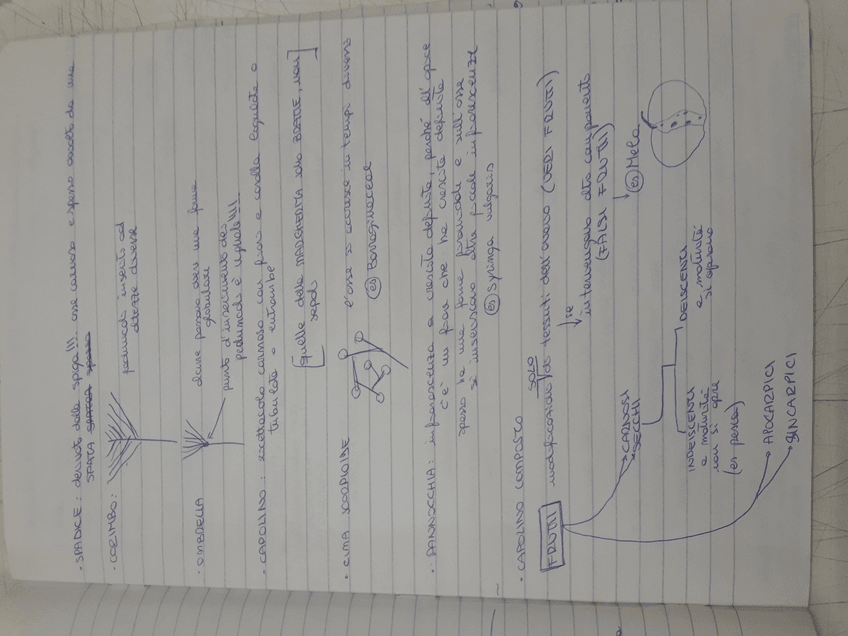 · SPADICE: derivato dalla spiga!!! asse carnoso e spesso avvolto da una
SPATA
· CORIMBO: peduncoli inseriti ad
altezze diverse
· OMBRELLA alcune possono avere una forma
globulare
punto d'inserimento dei
peduncoli è uguale!!!
· CAPOLINO: ricettacolo carnoso con fiori a corolla ligulata o
tubulata o entrambe
[Quelle della MARGHERITA sono BRATTEE, non
sepali]
· CIMA SCORPIOIDE l'asse si accresce in tempi diversi
es Borraginaceae
· PANNOCCHIA: infiorescenza a crescita definita, perché all'apice
c'è un fiore che ha crescita definita
spesso ha una forma piramidale e sull'asse
si inseriscono altre piccole infiorescenze
es Syringa vulgaris
· CAPOLINO COMPOSTO
SOLO
FRUTTI modificazioni di tessuti dell'ovario (VERI FRUTTI)
↓ se
intervengono altre componenti
(FALSI FRUTTI)
↓
es Mela
CARNOSI
SECCHI
INDEISCENTI
a maturità
non si apre
(es pesca)
DEISCENTI
a maturità
si aprono
APOCARPICI
SINCARPICI